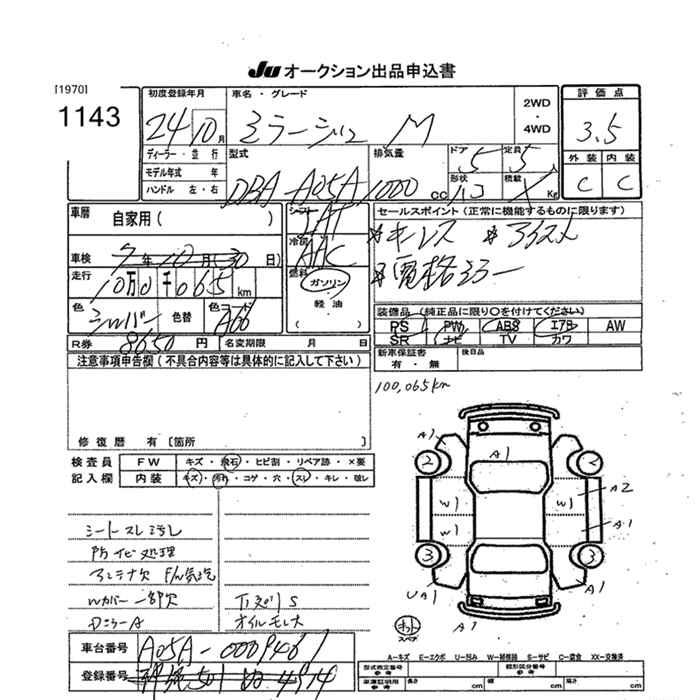 JU オークション出品申込書
[1970]
1143
初度登録年月
24 10 月
車名・グレード
ミラージュ M
2WD
・
4WD
評価点
3.5
外装 内装
C C
ディーラー・並行
モデル年式 年
ハンドル 左・右
型式
DBA-A05A
排気量
1000 cc
ドア 5
定員 5 人
形状
積載 Kg
車歴
自家用( )
シフト
冷房
AAC
燃料
ガソリン
・
軽油
車検 7年10月(30日)
走行
10万0千065 km
色
シルバー
色替
色コード
A66
R券 8650 円
名変期限 月 日
セールスポイント(正常に機能するものに限ります)
*キーレス *アイスト
*電格ミラー
装備品(純正品に限り○を付けてください)
PS PW ABS エアB AW
SR ナビ TV カワ
新車保証書
有・無
後日品
100,065km
注意事項申告欄(不具合内容等は具体的に記入して下さい)
修復歴 有〔箇所 〕
検査員
記入欄
FW キズ・飛石・ヒビ割・リペア跡・×要
内装 キズ・汚れ・コゲ・穴・スレ・キレ・破レ
シートスレ汚し
防サビ処理
アンテナ欠
Wカバー一部欠
DミラーA
下廻りS
オイルモレ大
車台番号 A05A-0009461
登録番号
A1
A1
2
2
W1
W1
A2
W1
A1
3
3
UA1
A1
A1
スペア
A-キズ E-エクボ U-凹み W-補修跡 S-サビ C-腐食 XX-交換済
型式指定番号
参考
類別区分番号
参考
車庫証明用
参考
長さ cm
幅 cm
高さ cm